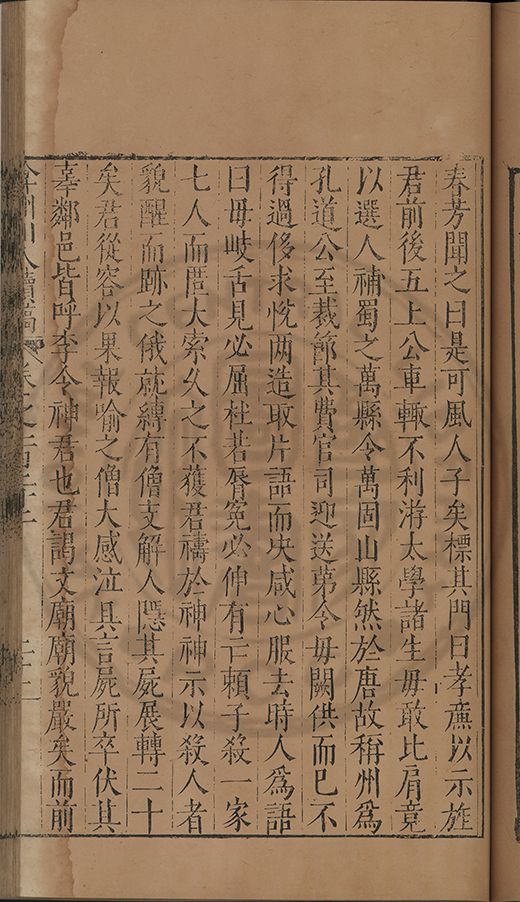 春芳聞之曰是可風人子矣標其門曰孝亷以示旌
君前後五上公車輙不利游太學諸生毋敢比肩竟
以選人補蜀之萬縣令萬固山縣然於唐故稱州爲
孔道公至裁節其費官司迎送苐令毋闕供而已不
得過侈求悅两造取片語而决咸心服去時人爲語
曰毋岐舌見必屈杜若脣寃必伸有亡頼子殺一家
七人而匿大索乆之不獲君禱於神神示以殺人者
貌醒而跡之俄就縛有僧支解人隱其屍展轉二十
矣君從容以果報喻之僧大感泣具言屍所卒伏其
辜鄰邑皆呼李令神君也君謁文廟廟貌嚴矣而前
弇州山人續稿 卷之一百